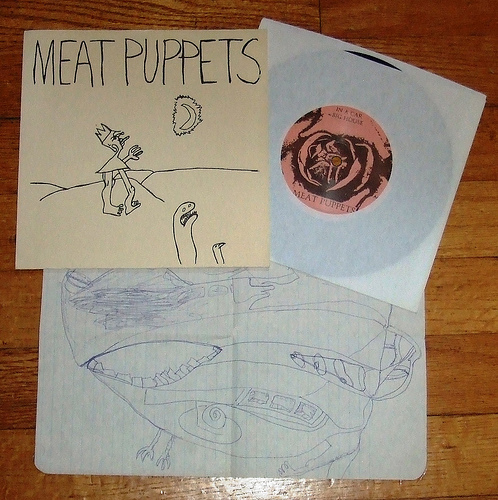 MEAT PUPPETS
IN A CAR
BIG HOUSE
MEAT PUPPETS